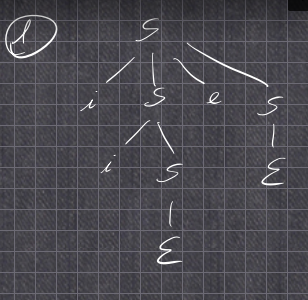 1
S
i S e S
i S ε
ε